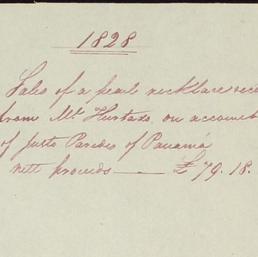 1828
Sales of a pearl necklace rec
from Mr. Hurtado on account
of Justo Paredes of Panamá
nett proceeds — £79.18.